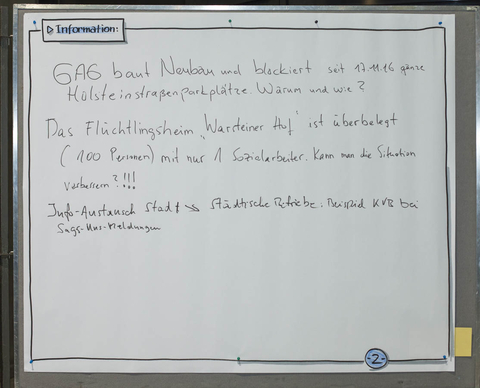 ▷ Information:
GAG baut Neubau und blockiert seit 17.11.16 ganze
Holsteinstraßenparkplätze. Warum und wie?
Das Flüchtlingsheim "Warteiner Hof" ist überbelegt
(100 Personen) mit nur 1 Sozialarbeiter. Kann man die Situation
verbessern?!!!
Info-Austausch Stadt ↘ Städtische Betriebe: Beispiel KVB bei
Sags-Uns-Meldungen
-2-